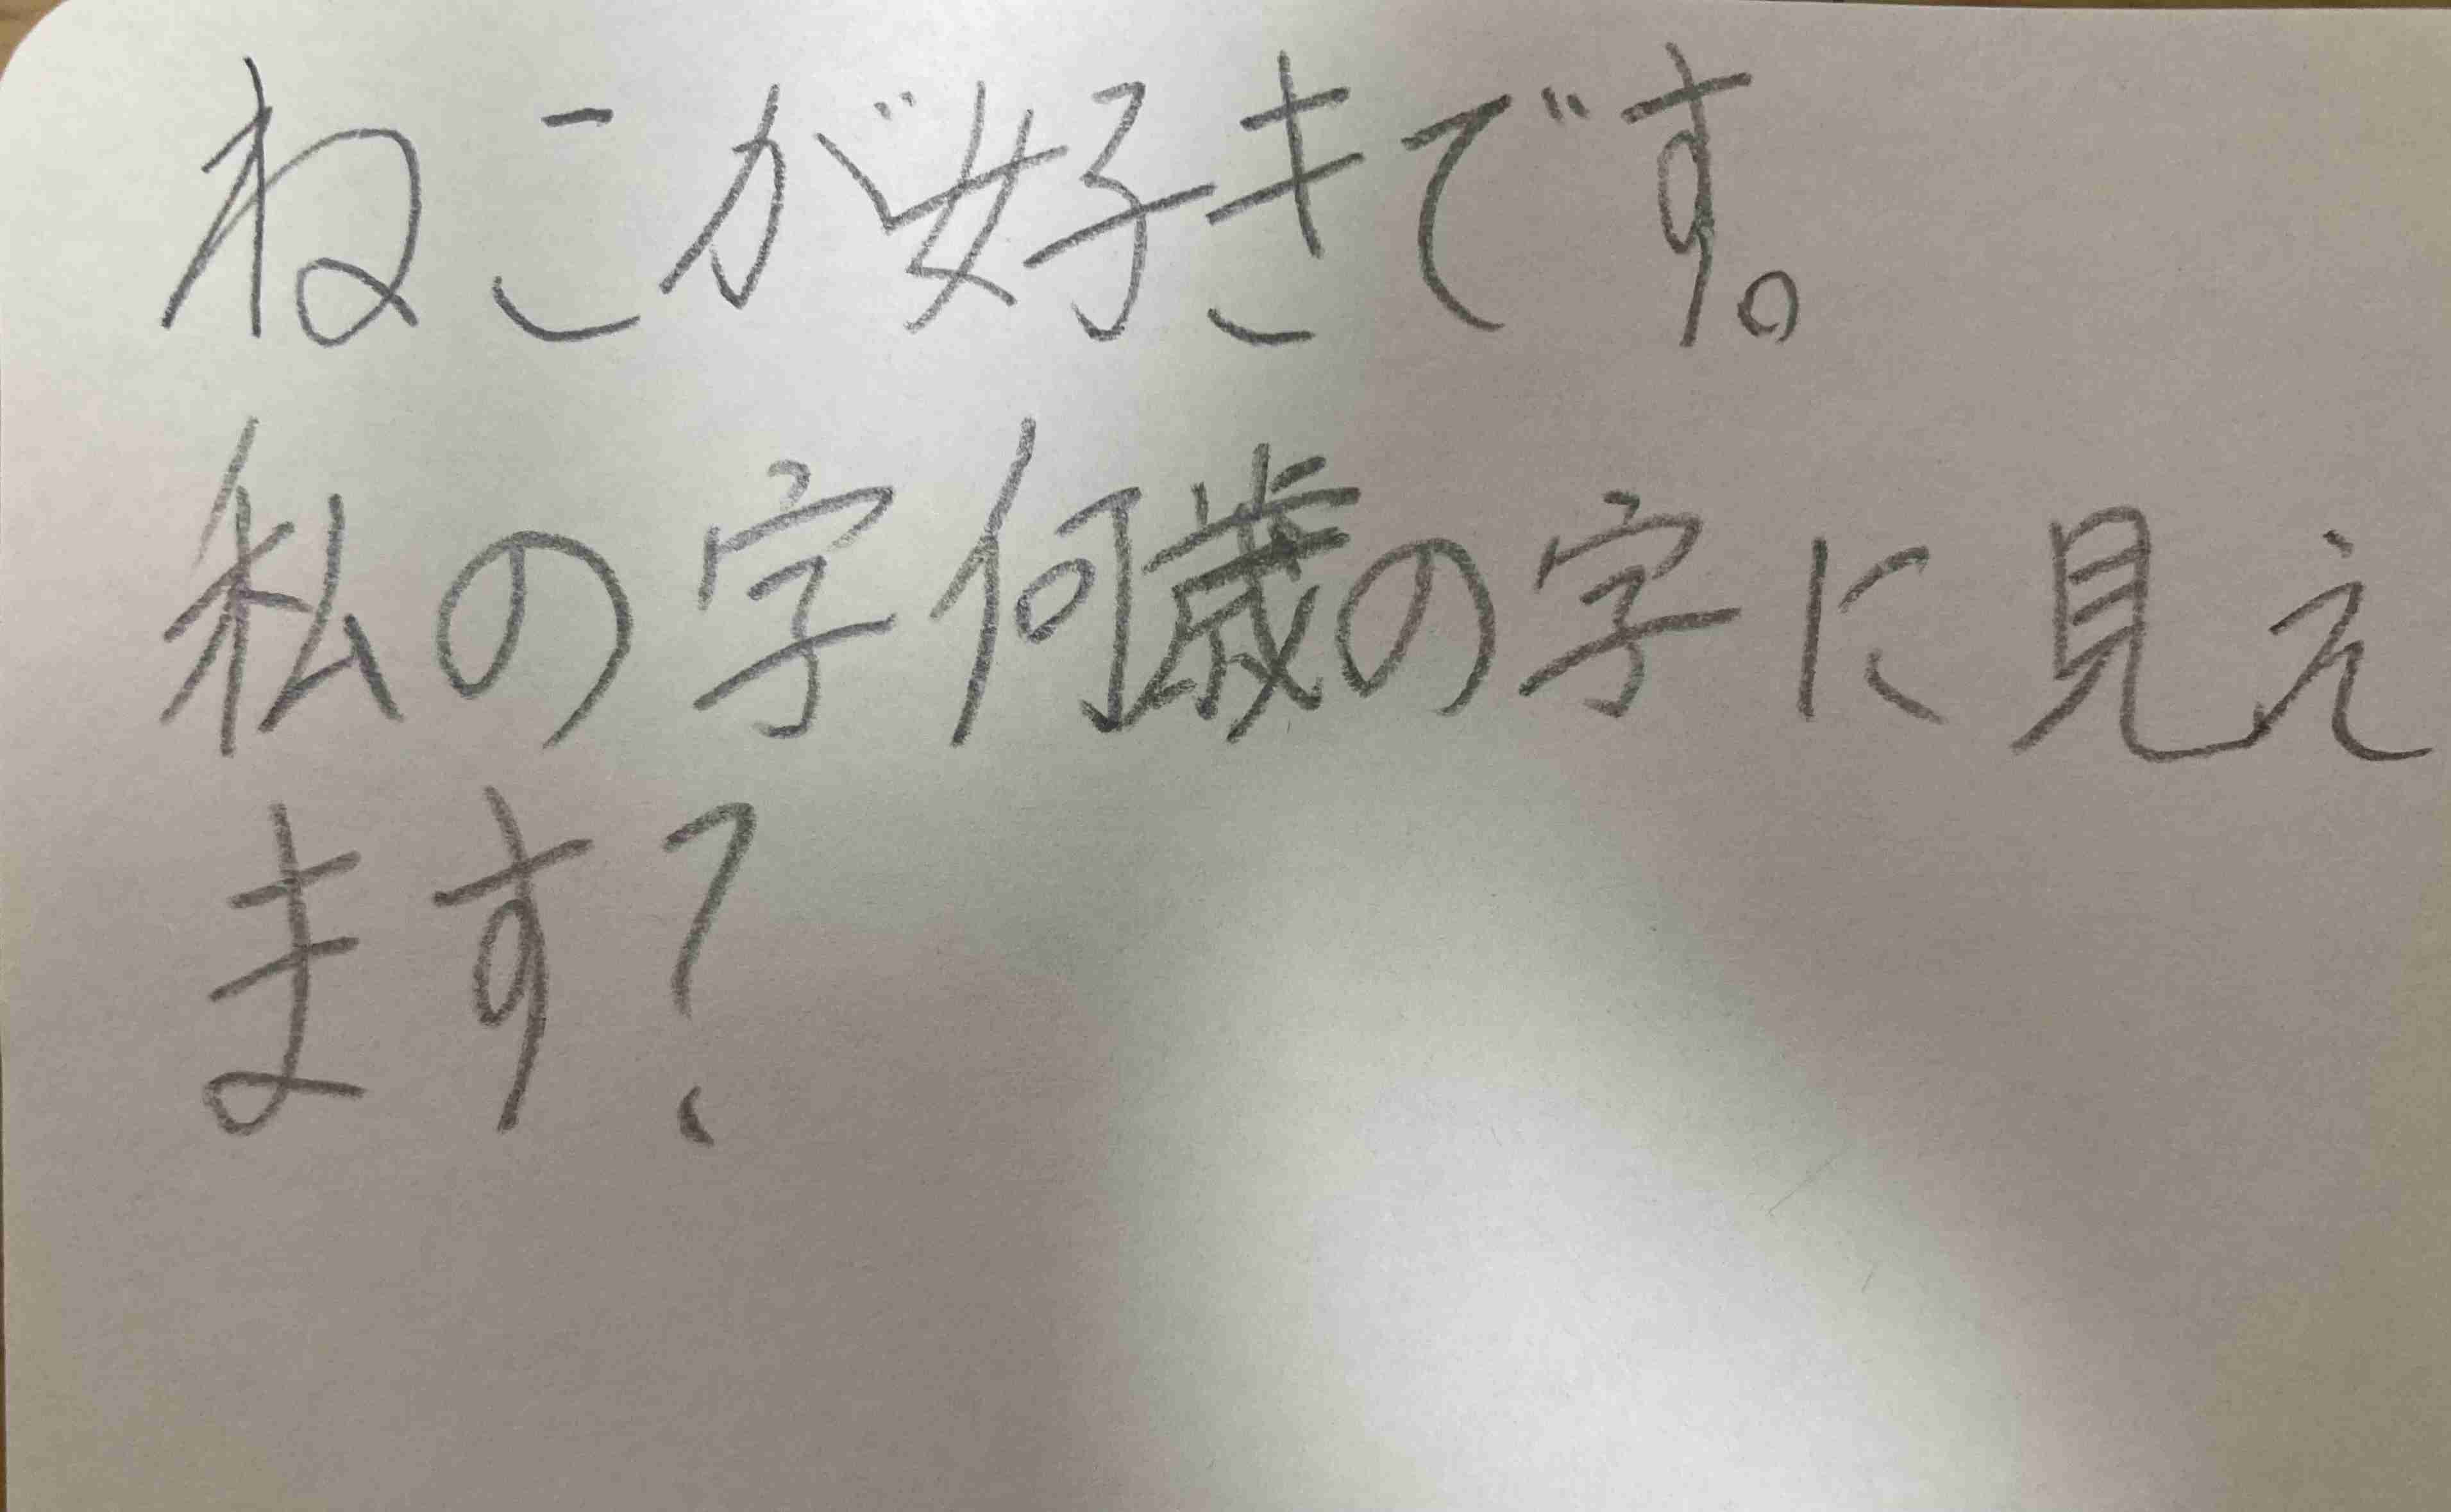 ねこが好きです。
私の字何歳の字に見え
ます?